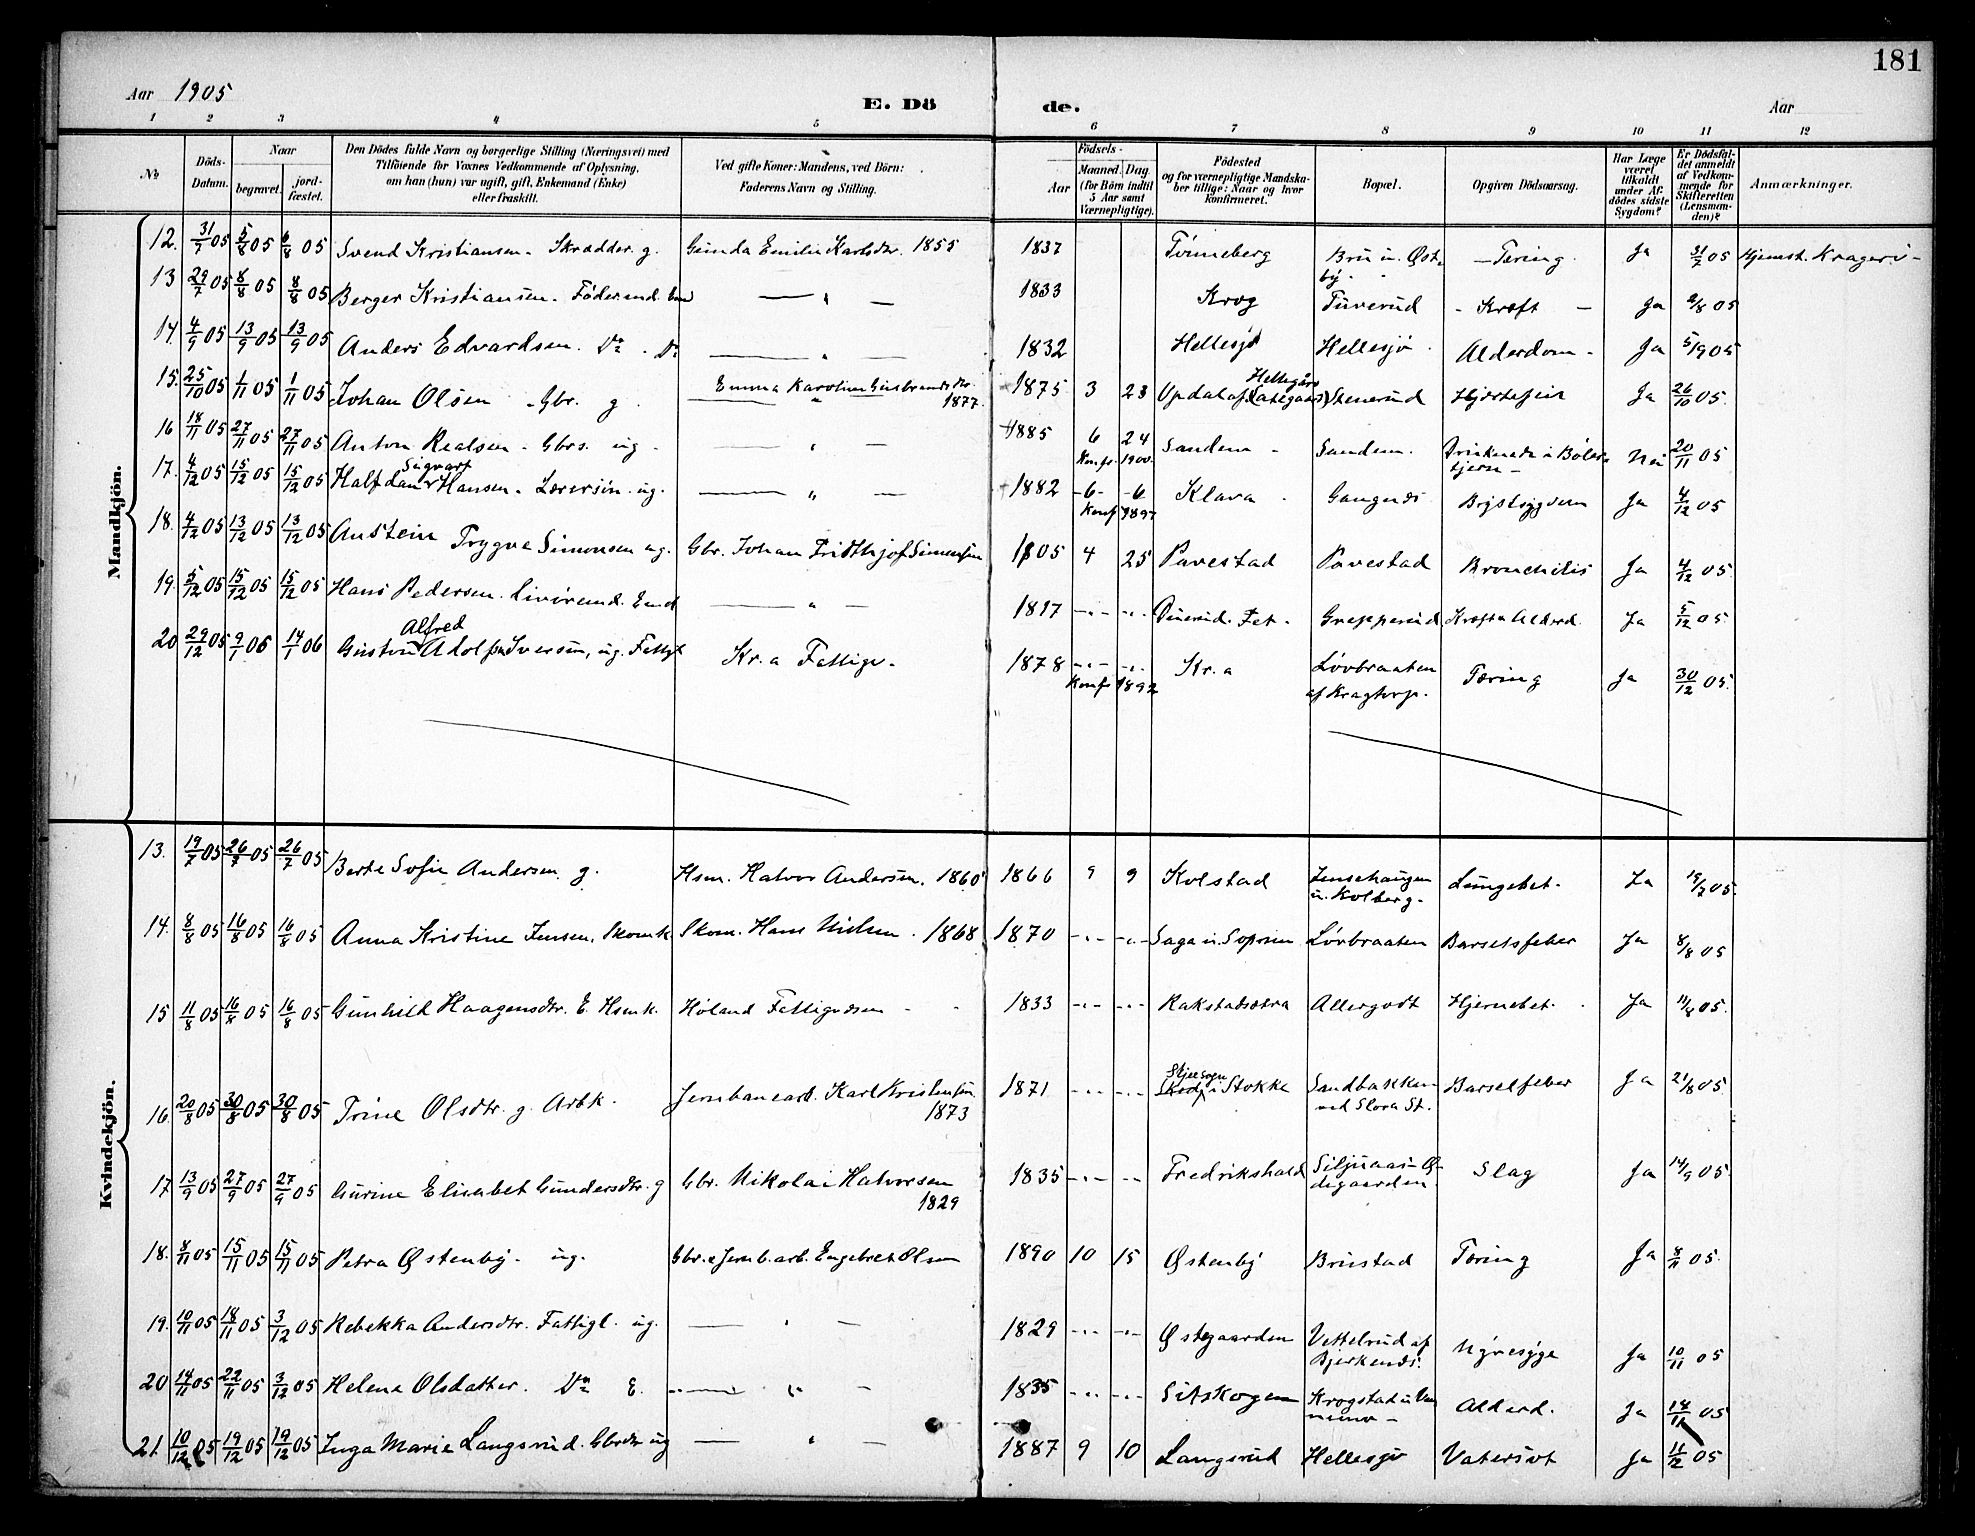 181
Aar 1905
E. Dö de.
Aar
1 2 3 4 5 6 7 8 9 10 11 12
No
Döds-Datum.
Naar
begravet.
jord-fæstet.
Den Dödes fulde Navn og borgerlige Stilling (Næringsvei) med
Tilföiende for Voxnes Vedkommende af Oplysning,
om han (hun) var ugift, gift, Enkemand (Enke)
eller fraskilt.
Ved gifte Koner: Mandens, ved Börn:
Faderens Navn og Stilling.
Födsels-
Aar
Maaned. Dag
(for Börn indtil
5 Aar samt
Værnepligtige).
Födested
og for værnepligtige Mandska-
ber tillige: Naar og hvor
konfirmeret.
Bopæl.
Opgiven Dödsaarsag.
Har Læge
været
tilkaldt
under Af-
dödes sidste
Sygdom?
Er Dödsfal-
det anmeldt
af Vedkom-
mende for
Skifteretten
(Lensman-
den)?
Anmærkninger.
Mandkjön.
12. 31/7 05 5/8 05 6/8 05 Svend Kristiansen - Skrædder. g. Gunda Emilie Karlsdtr. 1855 1837 Tvinneberg Bru u. Østby - Tæring. Ja 31/7 05 Hjemst. Kragerö -
13 29/7 05 8/8 05 8/8 05 Berger Kristiansen. Föderaad. Em — " — 1833 Krog Tuverud - Kræft - Ja 2/8 05
14. 4/9 05 13/9 05 13/9 05 Anders Edvardsen. Do. Do — " — 1832 Hellesjö Hellesjö. Alderdom - Ja 5/9 05
15. 25/10 05 1/11 05 1/11 05 Johan Olsen - Gbr. g. Emma Karoline Gulbrandsdtr. 1877. 1875 3 23 Opdal af Stenerud Hjertefeil Ja 26/10 05.
16 18/11 05 27/11 05 27/11 05 Anton Realsen - Gbrs. ug - — " — 1885 6 24 Konf. 1900. Sandem - Sandem. Druknede i Böler-tjern - Nei 20/11 05
17. 4/12 05 15/12 05 15/12 05 Halfdan Sigvart Hansen. Lærersön. ug. — " — 1882 -6- -6 Konf 1897 Klava - Gangnæs Brystsygdom Ja 4/12 05
18. 4/12 05 13/12 05 13/12 05 Austein Trygve Simonsen ug. Gbr. Johan Fridthjof Simonsen 1905 4 25 Pavestad Pavestad Bronchitis Ja 4/12 05.
19. 5/12 05 15/12 05 15/12 05 Hans Pedersen. Livöremd. Emd — " — 1817 -"- -"- Fet - Grepperud Kræft & Alderd. Ja 5/12 05.
20 29/12 05 9/1 06 14/1 06 Gustav Adolf Alfred Iversen, ug. Fattigl Kr.a Fattigv. 1878 -"- -"- Konf 1892 Kr.a Lövbraaten af Kragtorp. Tæring Ja 30/12 05.
Kvindekjön.
13. 19/7 05 26/7 05 26/7 05 Berte Sofie Andersen. g. Hsm. Halvor Andersen. 1860 1866 9 9 Kolstad Jensehaugen u. Kolberg. Lungebet. Ja 19/7 05
14. 8/8 05 16/8 05 16/8 05 Anna Kristine Jensen. Skomk Skom. Hans Nielsen. 1868 1870 -"- -"- Saga u. Soprim Lövbraaten Barselsfeber Ja 8/8 05
15 11/8 05 16/8 05 16/8 05 Gunhild Haagensdtr. E. Hsmk. Höland Fattigvæsen - 1833 -"- -"- Rakstadsætra Allergodt Hjernebet. Ja 11/8 05.
16. 20/8 05 30/8 05 30/8 05 Trine Olsdtr. g. Arbk. Jernbanearb. Karl Kristensen 1873 1871 -"- -"- i Stokke Sandbakken ved Slora St. Barselfeber Ja 21/8 05
17 13/9 05 27/9 05 27/9 05 Gurine Elisabet Gundersdtr. g Gbr. Nikolai Halvorsen 1829 1835 -"- -"- Fredrikshald Siljuaas-Ødegaarden Slag Ja 14/9 05
18. 8/11 05 15/11 05 15/11 05 Petra Østenby. ug. Gbr. & Jernb.arb. Engebret Olsen 1890 10 15 Østenby Brustad Tæring Ja 8/11 05.
19. 10/11 05 18/11 05 3/12 05 Rebekka Andersdtr. Fattigl. ug. — " — 1829 -"- -"- Østegaarden Vettelrud af Bjerkenæs. Nyresyge Ja 10/11 05
20 14/11 05 22/11 05 3/12 05 Helene Olsdatter. Do E. — " — 1835 -"- -"- Sitskogen Krogstad u. Alderd. Ja 18/11 05
21. 10/12 05 19/12 05 19/12 05 Inga Marie Langsrud. Gbrdtr ug — " — 1887 9 10 Langsrud Hellesjö Vatersot Ja 11/12 05